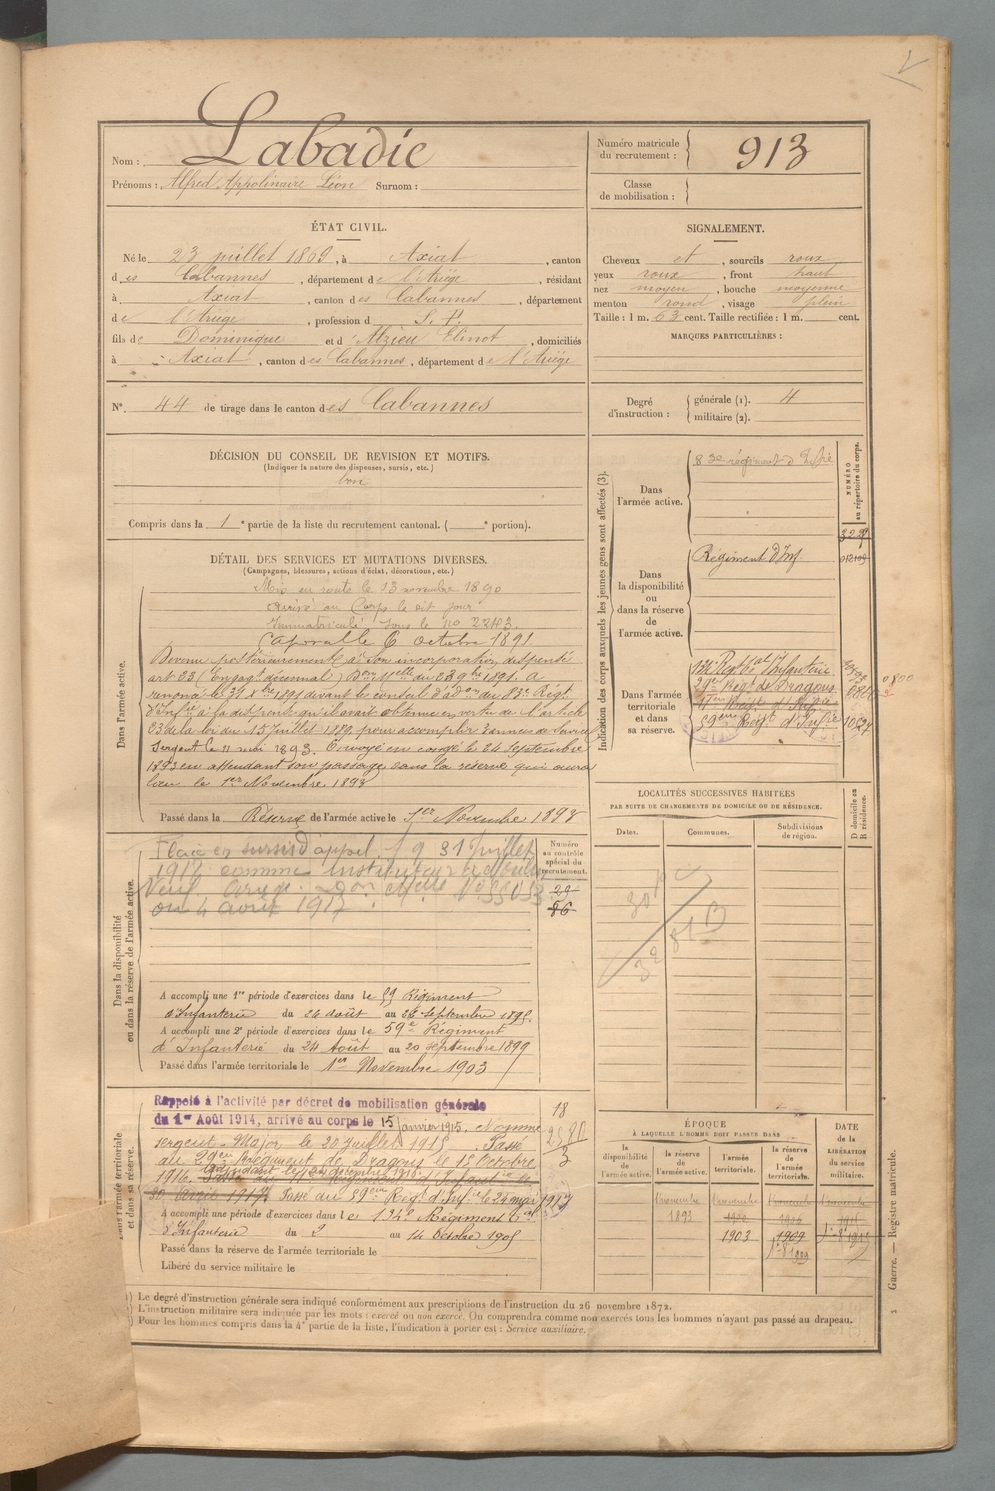 Nom : Labadie
Prénoms : Alfred Appolinaire Léon Surnom :
Numéro matricule du recrutement : 913
Classe de mobilisation :
ÉTAT CIVIL.
Né le 23 juillet 1869, à Axiat, canton
des Cabannes, département de l'Ariège, résidant
à Axiat, canton des Cabannes, département
de l'Ariège, profession d S. P.
fils de Dominique et d'Alzieu Elinot, domiciliés
à Axiat, canton des Cabannes, département de l'Ariège
N° 44 de tirage dans le canton des Cabannes
SIGNALEMENT.
Cheveux et, sourcils roux
yeux roux, front haut
nez moyen, bouche moyenne
menton rond, visage plein
Taille : 1 m. 63 cent. Taille rectifiée : 1 m. cent.
MARQUES PARTICULIÈRES :
Degré d'instruction : générale (1). 4
militaire (2).
DÉCISION DU CONSEIL DE REVISION ET MOTIFS.
(Indiquer la nature des dispenses, sursis, etc.)
bon
Compris dans la 1e partie de la liste du recrutement cantonal. ( e portion).
DÉTAIL DES SERVICES ET MUTATIONS DIVERSES.
(Campagnes, blessures, actions d'éclat, décorations, etc.)
Dans l'armée active.
Mis en route le 13 novembre 1890
arrivé au Corps le dit jour
Immatriculé sous le no 2283.
Caporal le 6 octobre 1891
Devenu postérieurement à son incorporation, dispensé
art 23 (Engagt décennal) Don Melle du 23 9bre 1891. a
renoncé le 31 Xbre 1891 devant le conseil d'adon du 83e Régt
d'Infrie à la dispense qu'il avait obtenue en vertu de l'article
23 de la loi du 15 Juillet 1889 pour accomplir 3 années de service
Sergent le 11 mai 1893. Envoyé en congé le 24 Septembre
1893 en attendant son passage dans la réserve qui aura
lieu le 1er Novembre 1893
Passé dans la Réserve de l'armée active le 1er Novembre 1893
Indication des corps auxquels les jeunes gens sont affectés (3).
NUMÉRO au répertoire du corps.
Dans l'armée active.
83e régiment d'Infie
Dans la disponibilité ou dans la réserve de l'armée active.
Régiment d'Inf.
Dans l'armée territoriale et dans sa réserve.
134e Régt tal d'Infanterie
29e Régt de Dragons
59ème Régt d'Infie
LOCALITÉS SUCCESSIVES HABITÉES
PAR SUITE DE CHANGEMENTS DE DOMICILE OU DE RÉSIDENCE.
Dates. Communes. Subdivisions de région. D domicile ou R résidence.
Dans la disponibilité ou dans la réserve de l'armée active.
Numéro au contrôle spécial du recrutement.
29
86
Placé en sursis d'appel, 31 Juillet
1917 comme Instituteur
Ariège. No 35053
du 4 avril 1917
A accompli une 1re période d'exercices dans le 59 Régiment
d'Infanterie du 26 août au 26 Septembre 1895.
A accompli une 2e période d'exercices dans le 59e Régiment
d'Infanterie du 24 Août au 20 septembre 1899
Passé dans l'armée territoriale le 1er Novembre 1903
Dans l'armée territoriale et dans sa réserve.
Rappelé à l'activité par décret de mobilisation générale
du 1er Août 1914, arrivé au corps le 15 janvier 1915. Nommé
sergent-Major le 20 juillet 1915. Passé
au 29em Régiment de Dragons le 15 Octobre
1916. Adjudant le 1er décembre 1916.
Passé au 59ème Rég. d'Infie le 24 mai 1917
A accompli une période d'exercices dans le 134e Régiment tal
d'Infanterie du 2 au 14 Octobre 1905
Passé dans la réserve de l'armée territoriale le
Libéré du service militaire le
ÉPOQUE
À LAQUELLE L'HOMME DOIT PASSER DANS
la disponibilité de l'armée active. la réserve de l'armée active. l'armée territoriale. la réserve de l'armée territoriale.
DATE de la LIBÉRATION du service militaire.
1893
1903
1909
(1) Le degré d'instruction générale sera indiqué conformément aux prescriptions de l'instruction du 26 novembre 1872.
(2) L'instruction militaire sera indiquée par les mots : exercé ou non exercé. On comprendra comme non exercés tous les hommes n'ayant pas passé au drapeau.
(3) Pour les hommes compris dans la 4e partie de la liste, l'indication à porter est : Service auxiliaire.
Guerre. — Registre matricule.